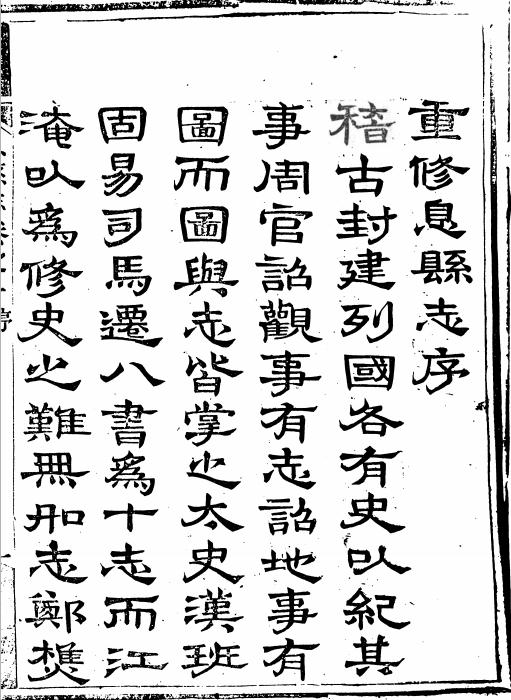 重修息縣志序
稽古封建列國各有史以紀其
事周官詔觀事有志詔地事有
圖而圖與志皆掌之太史漢班
固易司馬遷八書爲十志而江
淹以爲修史之難無如志鄭樵